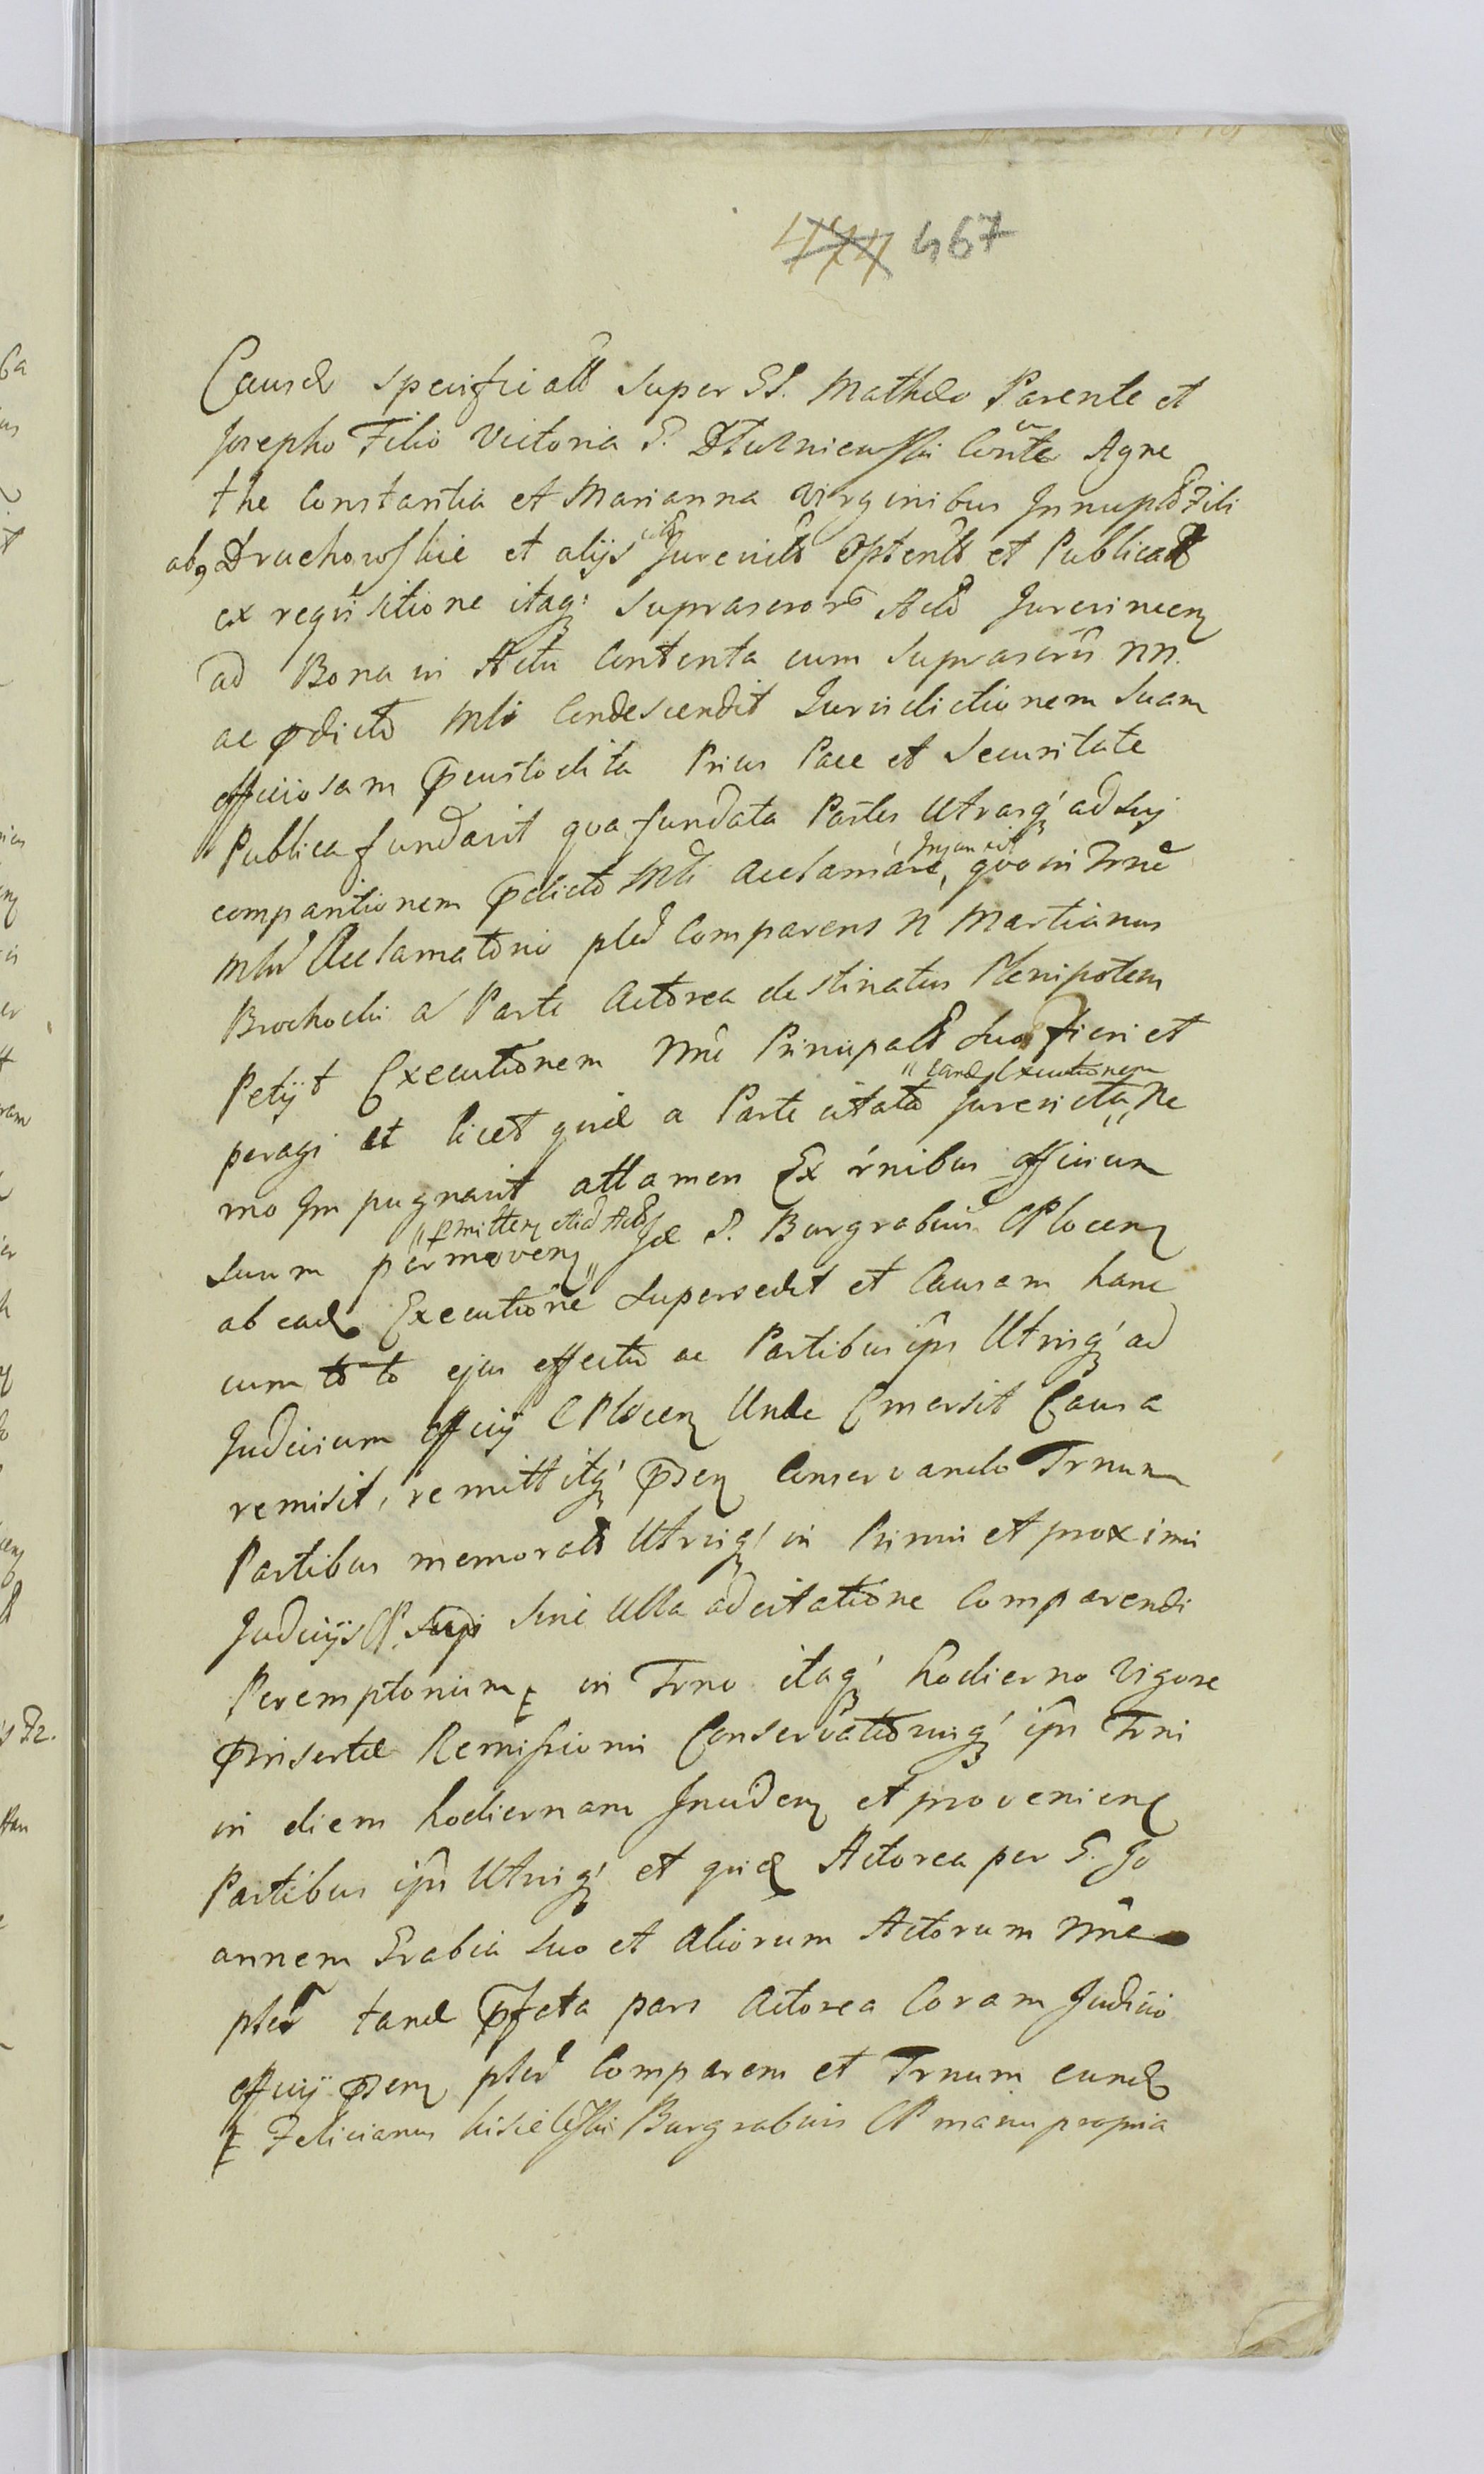 467
Causæ specificatis super SS. Mathæo Parente et
Josepho Filio Victoria S. Dłuzniewski Conte Agne
the Constantia et Marianna Virginibus Innuptis Fili
abq Druchowskie et alijs Jurevictis Optentis et Publicatis
ex requisitione itaq: suprascror Actor Jurevincen
ad Bona in Actu Contenta cum suprascris nn.
ac pdicto Mli Condescendit Jurisdictionem Suam
officiosam pcustodita Prius Pace et Securitate
Publica fundavit qva fundata Partes Utrasq' ad Suj
comparitionem pdicto Mli Acclamare, Injunxit qvo in Trno
Mlij Acclamatorio pler Comparens N Martianus
Brochocki a Parte Actorea destinatus Plenipotens
Petijt Executionem nne Principalis Suor fieri et
peragi et licet quid a Parte citata Jurevicta, Ne
"eand Executionem
mo Impugnavit attamen Ex rnibus officium
suum permoven "pmitten etiad Actor" Idē S. Burgrabius CPlocen
ab ead Executione Supersedit et Causam hanc
cum to to ejus effectu ac Partibus ijs Utrisq' ad
Judicium officij CPlocen Unde Emersit Causa
remisit, remittitq' pden Conservando Trnum
Partibus memoratis Utrisq' in Primis et proximis
Judicijs CP. Sup Sine Ulla adcitatione Comparendi
Peremptorium in Trno itaq' hodierno Vigore
pinsertæ Remissionis Conservationisq' ijs Trni
in diem hodiernam Inciden et provenien
Partibus ijs Utrisq' et quid Actorea per S. Jo
annem Grabia suo et Aliorum Actorum nne
pler tand pfata pars Actorea Coram Judicio
officij pden pler Comparens et Trnum eund
Felicianus Kisielski Burgrabius CP manu propria